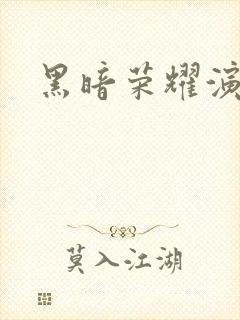 黑暗荣耀演
莫入江湖